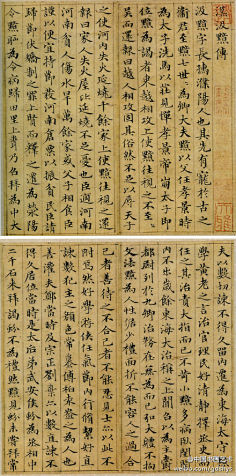 漢汲黯傳
汲黯字長孺濮陽人也其先有寵於古之
衛君至黯七世世為卿大夫黯以父任孝景時
為太子洗馬以莊見憚孝景帝崩太子即
位黯為謁者東越相攻上使黯往視之不至
至吳而還報曰越人相攻固其俗然不足以辱天子
之使河內失火延燒千餘家上使黯往視之還
報曰家人失火屋比延燒不足憂也臣過河南
河南貧人傷水旱萬餘家或父子相食臣
謹以便宜持節發河南倉粟以振貧民臣請
歸節伏矯制之罪上賢而釋之遷為滎陽
令黯恥為令病歸田里上聞乃召拜為中大
夫以數切諫不得久留內遷為東海太守黯
學黃老之言治官理民好清靜擇丞史而
任之其治責大指而已不苛小黯多病臥閨閤
內不出歲餘東海大治稱之上聞召以為主爵
都尉列於九卿治務在無為而已弘大體不拘
文法黯為人性倨少禮面折不能容人之過合
己者善待之不合己者不能忍見士亦以此不
附焉然好學游俠任氣節內行脩絜好直
諫數犯主之顏色常慕傅柏袁盎之為人也
善灌夫鄭當時及宗正劉棄亦以數直諫不
得久居位當是時太后弟武安侯蚡為丞相
中二千石來拜謁蚡不為禮然黯見蚡未嘗拜